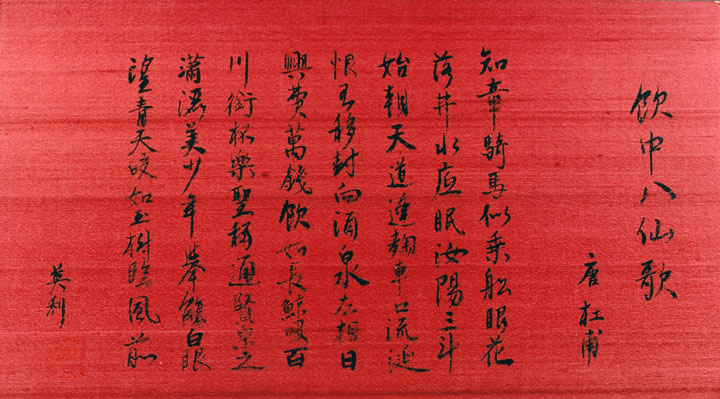 飲中八仙歌
唐杜甫
知章騎馬似乘船眼花
落井水底眠汝陽三斗
始朝天道逢麴車口流涎
恨不移封向酒泉左相日
興費萬錢飲如長鯨吸百
川銜杯樂聖稱避賢宗之
瀟灑美少年舉觴白眼
望青天皎如玉樹臨風前
英利